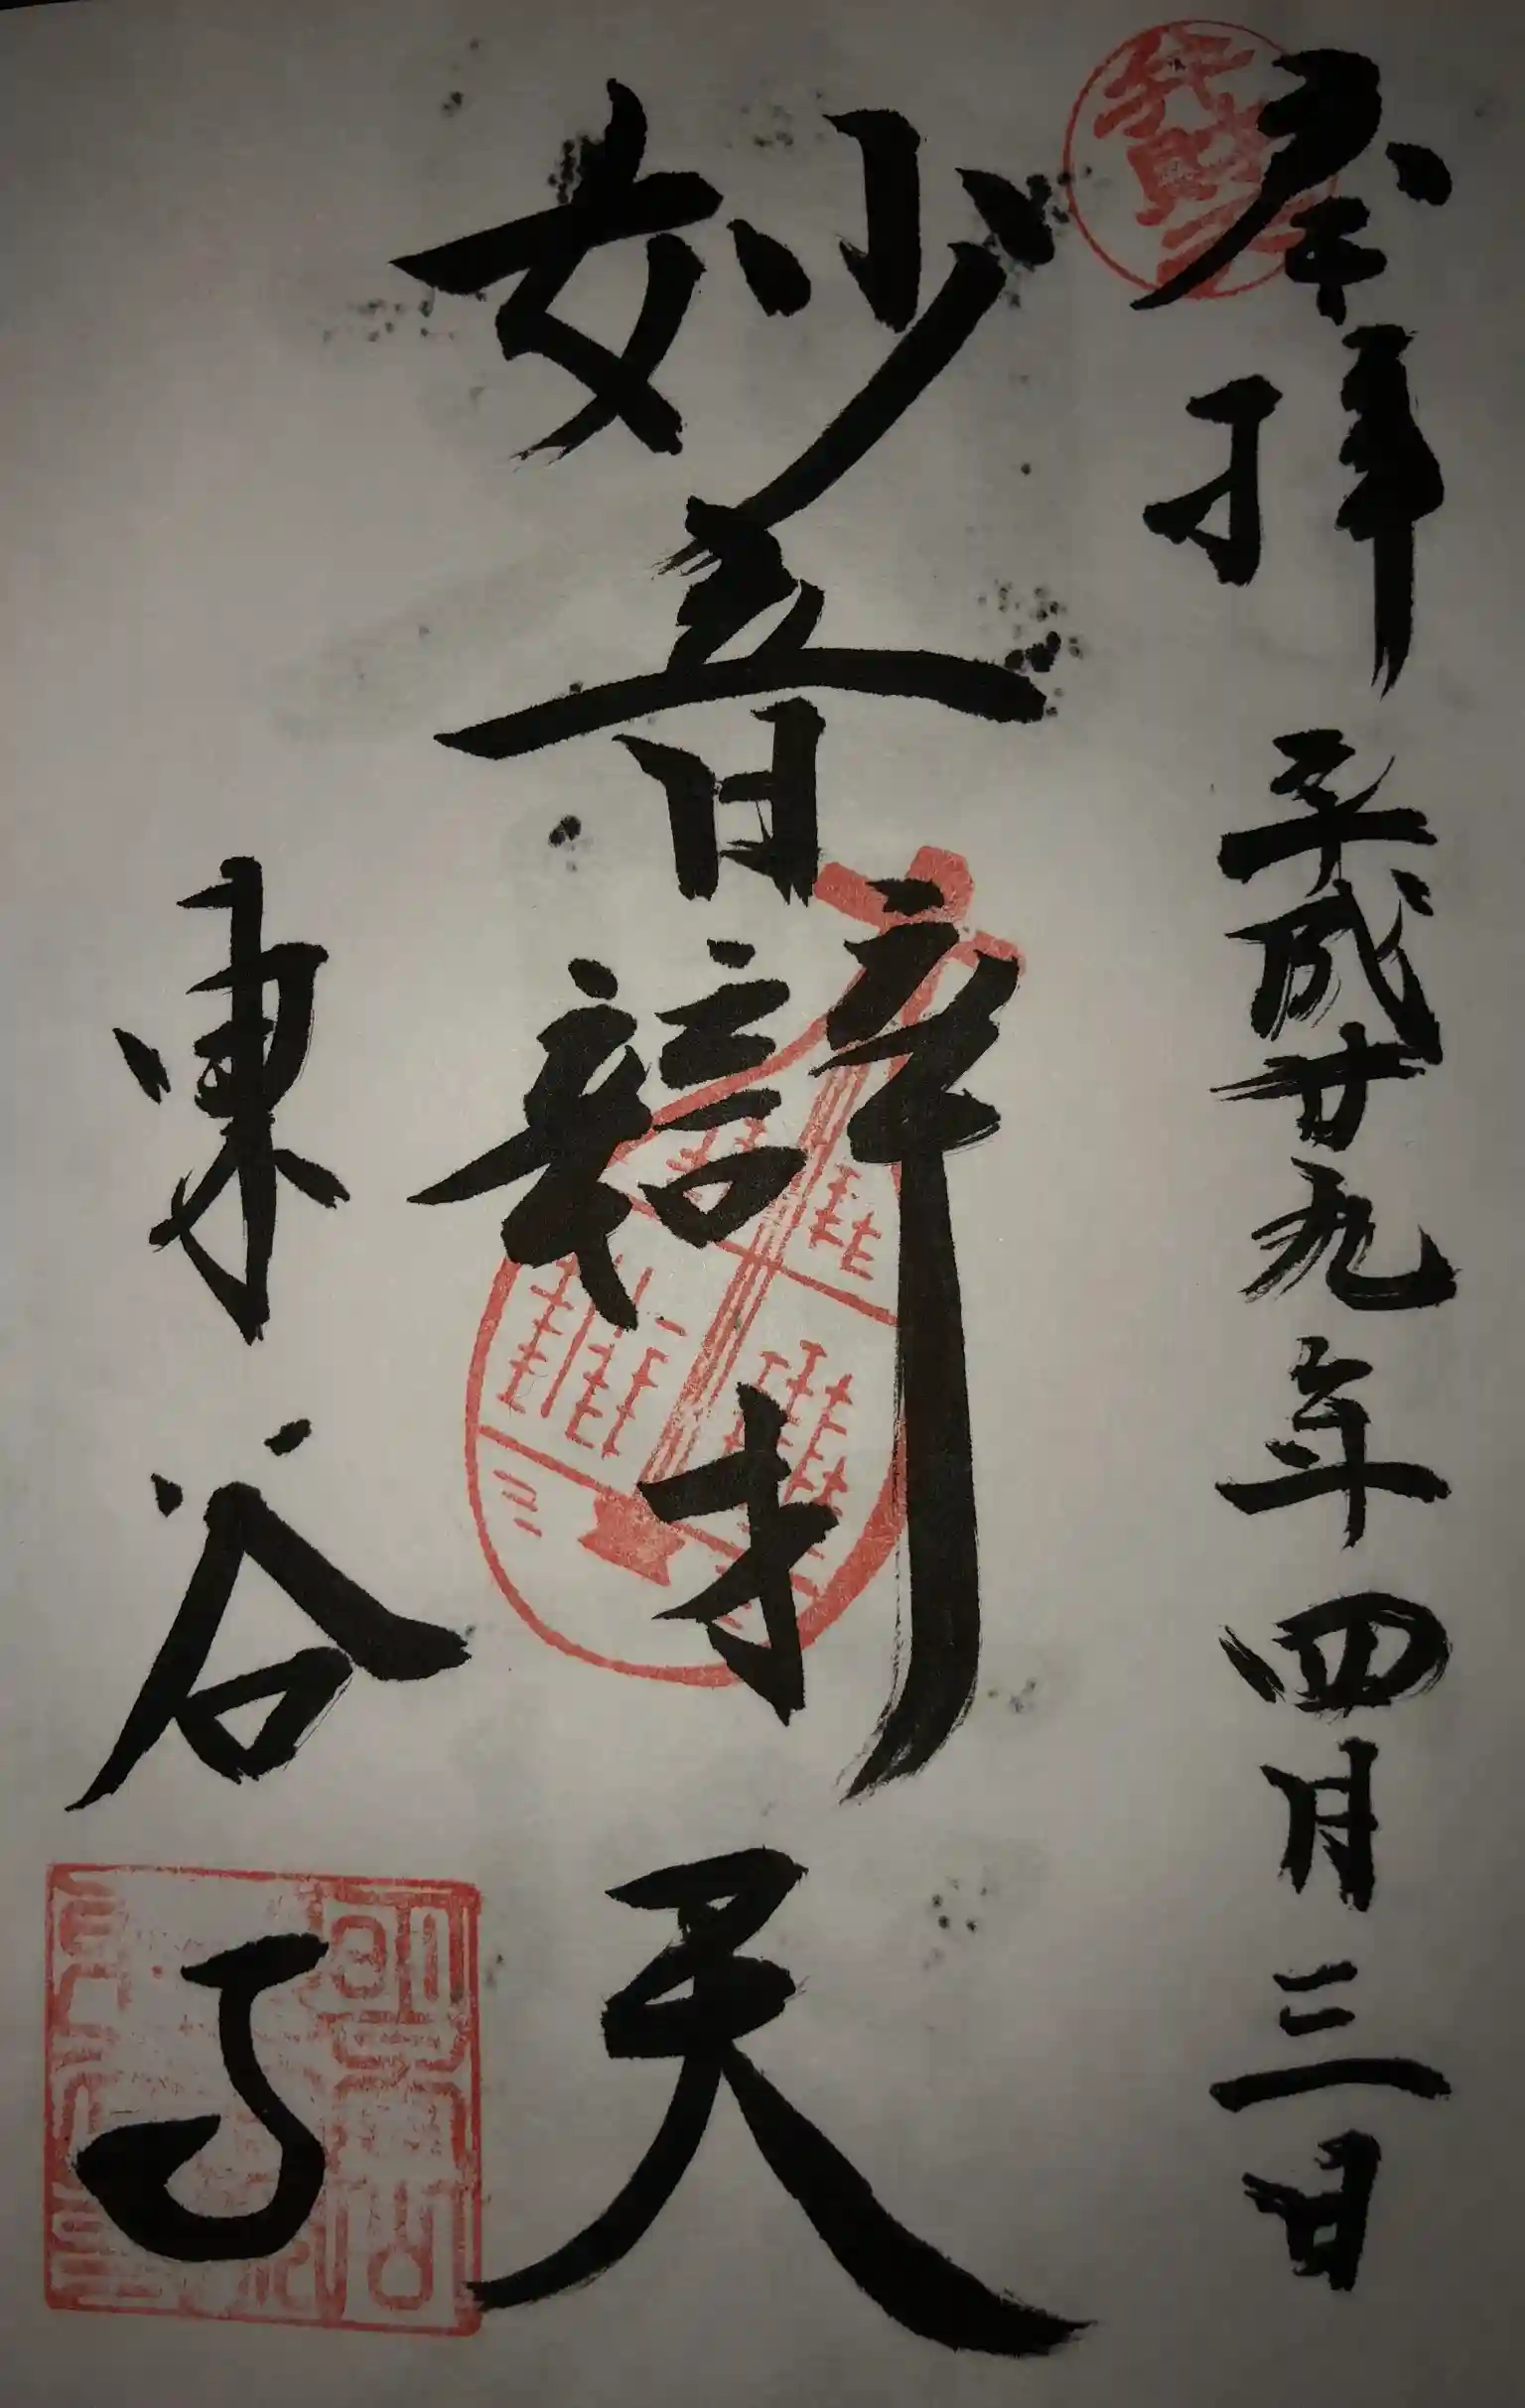 奉拝 平成廿九年四月三日
妙音辯才天
東谷寺